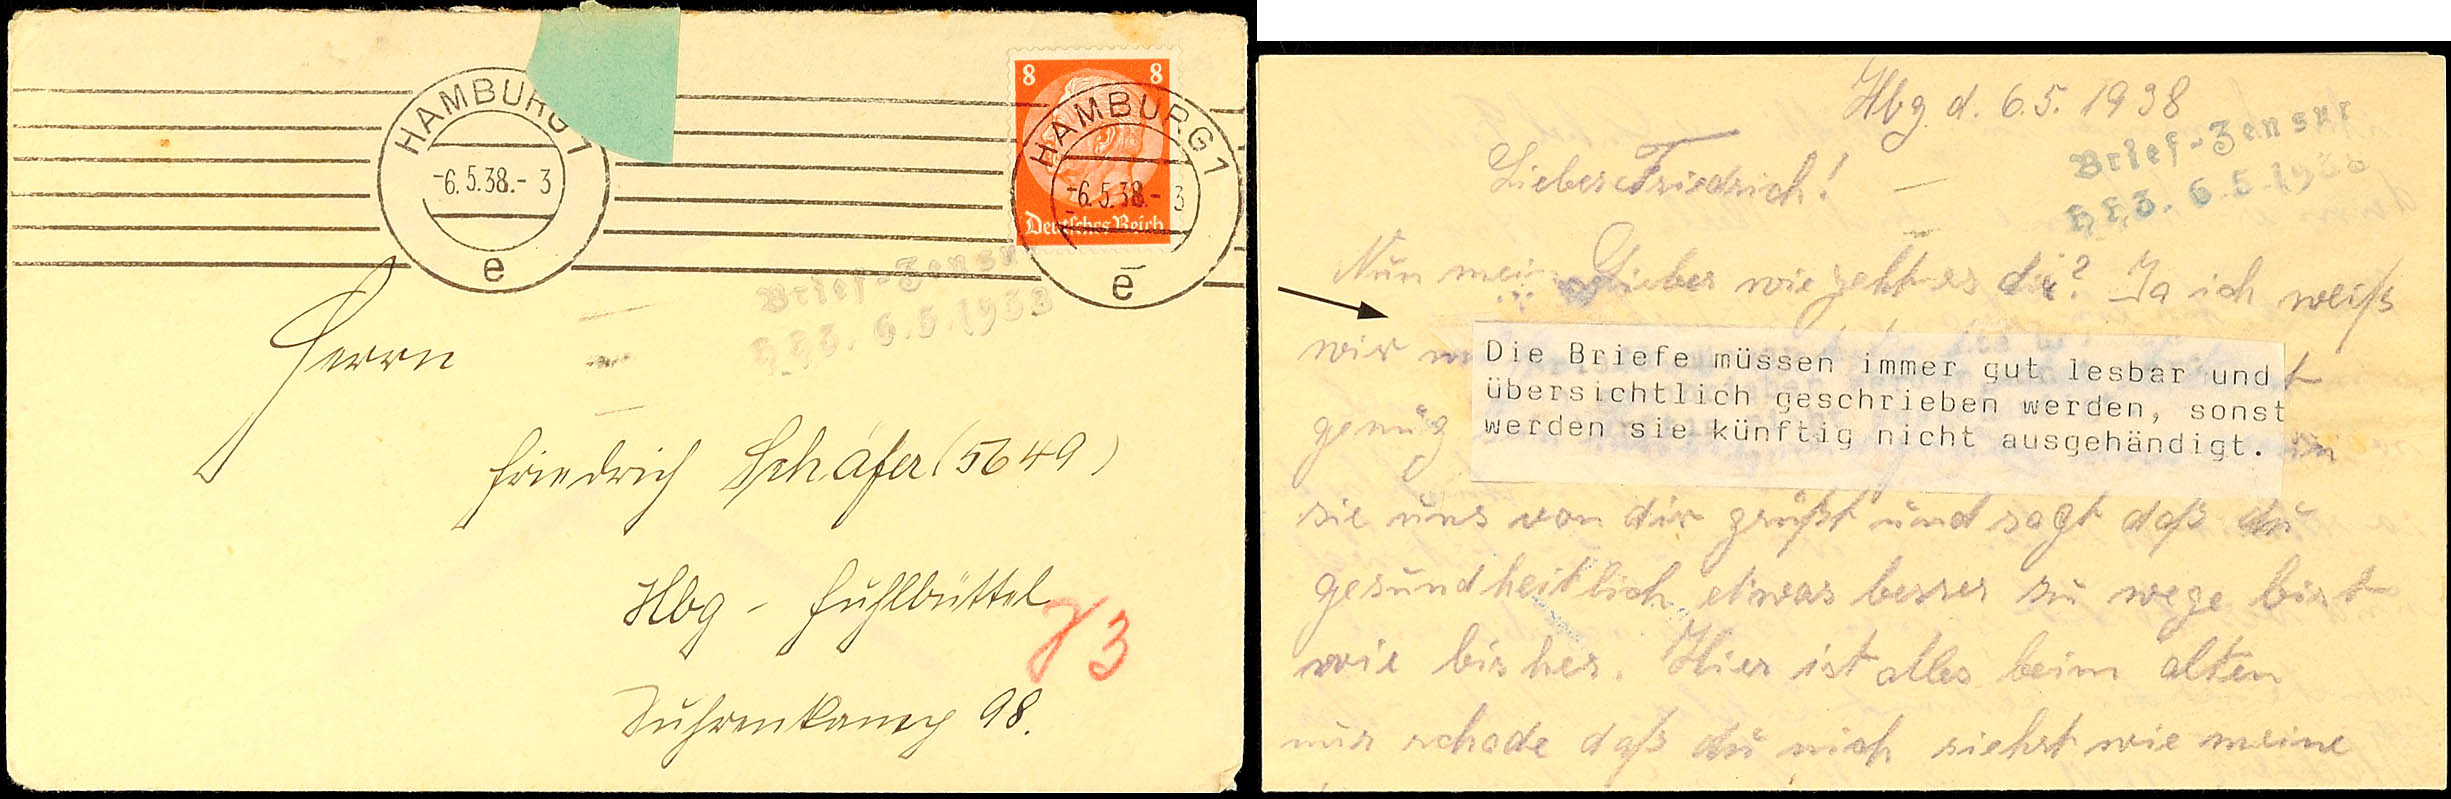 HAMBURG 1
-6.5.38.-3
e
8 8
Deutsches Reich
HAMBURG 1
-6.5.38.-3
e
Brief-Zensur
6.5.1938
Herrn
Friedrich Schäfer (5649)
Hbg - Fuhlbüttel
Suhrenkamp 98.
Hbg d. 6.5.1938
Brief-Zensur
6.5.1938
Lieber Friedrich!
Nun mein Lieber wie geht es dir? Ja ich weiß
wir
Die Briefe müssen immer gut lesbar und
übersichtlich geschrieben werden, sonst
werden sie künftig nicht ausgehändigt.
genug
sie uns von dir grüßt und sagt daß du
gesundheitlich etwas besser zu wege bist
wie bisher. Hier ist alles beim alten
nur schade daß du nich siehst wie meine